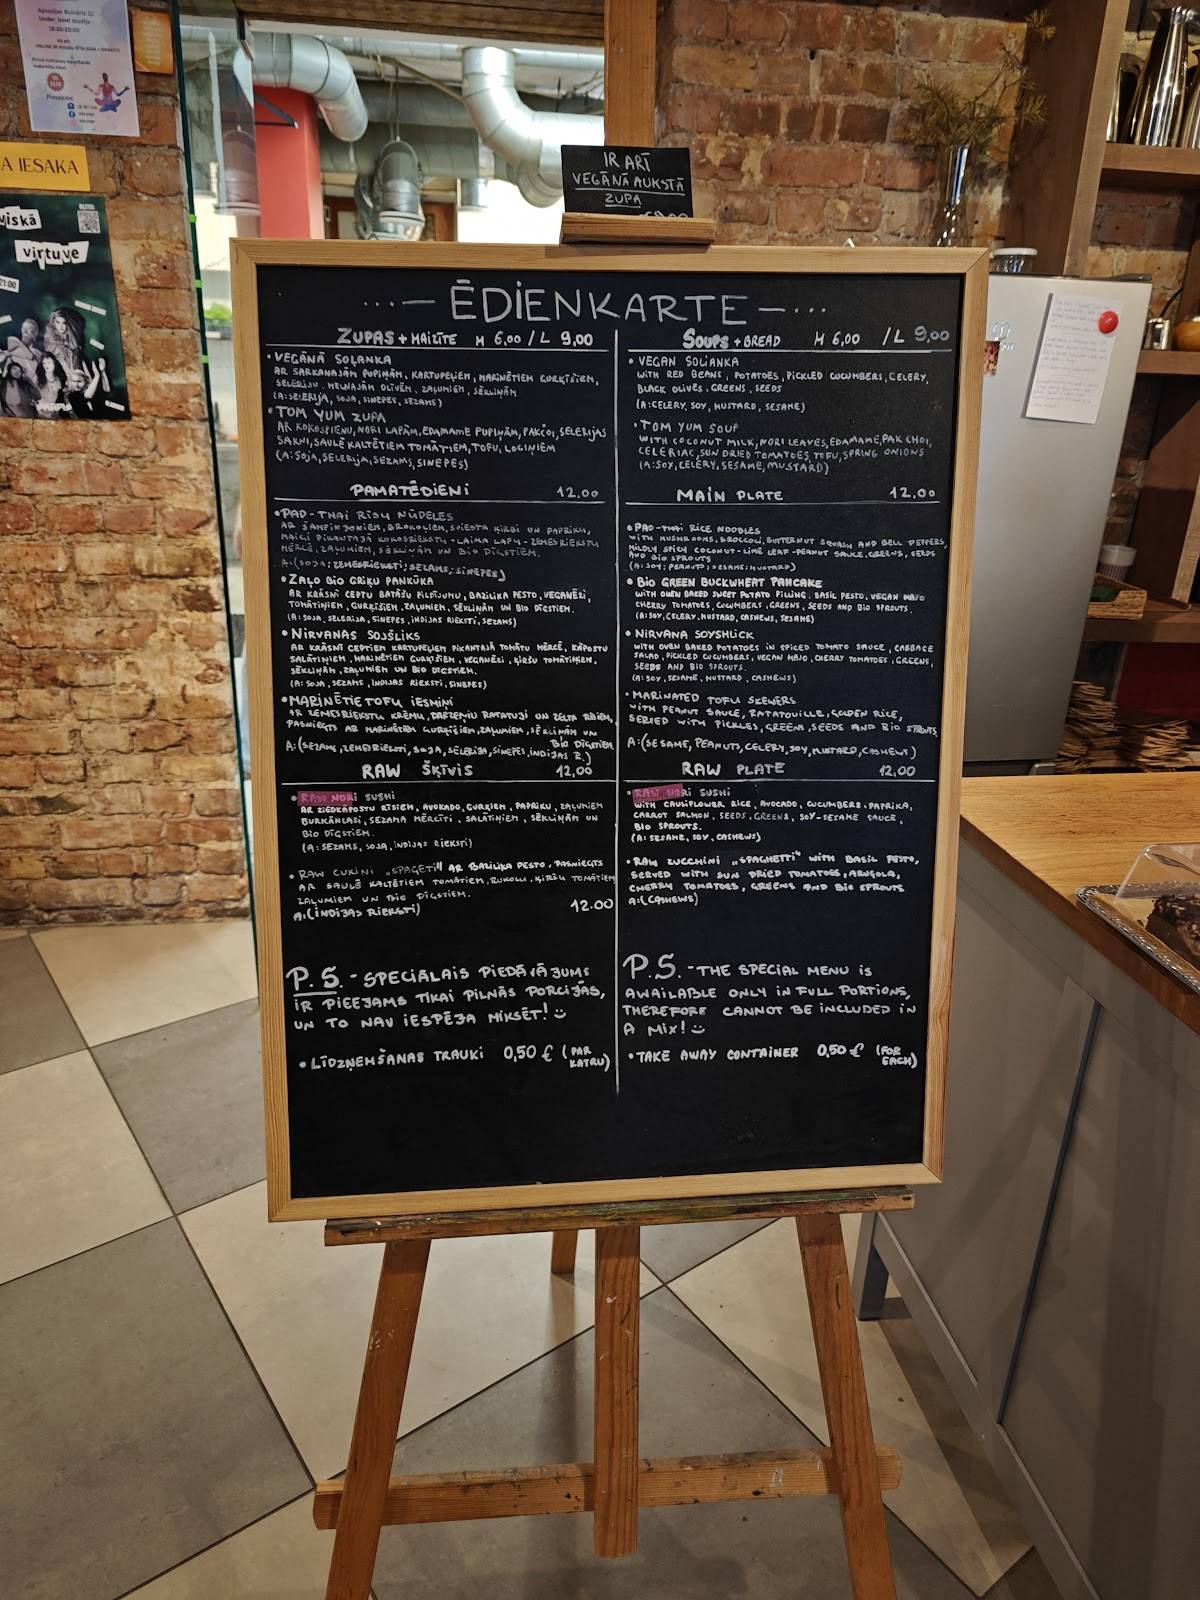 Apsazijas Bulvāris 12
18:30-20:00
Piesakies:
A IESAKA
viskā
virtuve
21:00
IR ARĪ
VEGĀNĀ AUKSTĀ
ZUPA
...— ĒDIENKARTE —...
ZUPAS + MAIZĪTE M 6,00 / L 9,00
• VEGĀNĀ SOĻANKA
AR SARKANAJĀM PUPIŅĀM, KARTUPEĻIEM, MARINĒTIEM GURĶĪŠIEM,
SELERIJU, MELNAJĀM OLĪVĒM, ZAĻUMIEM, SĒKLIŅĀM
(A: SELERIJA, SOJA, SINEPES, SEZAMS)
• TOM YUM ZUPA
AR KOKOSPIENU, NORI LAPĀM, EDAMAME PUPIŅĀM, PAKČOI, SELERIJAS
SAKNI, SAULĒ KALTĒTIEM TOMĀTIEM, TOFU, LOCIŅIEM
(A: SOJA, SELERIJA, SEZAMS, SINEPES)
PAMATĒDIENI 12.00
• PAD-THAI RĪSU NŪDELES
AR ŠAMPINJONIEM, BROKOLIEM, SVIESTA ĶIRBI UN PAPRIKU,
MAIGI PIKANTAJĀ KOKOSRIEKSTU - LAIMA LAPU - ZEMESRIEKSTU
MĒRCĒ, ZAĻUMIEM, SĒKLIŅĀM UN BIO DĪGSTIEM.
A: (SOJA; ZEMESRIEKSTI; SEZAMS; SINEPES)
• ZAĻO BIO GRIĶU PANKŪKA
AR KRĀSNĪ CEPTU BATĀŠU PILDĪJUMU, BAZILIKA PESTO, VEGANĒZI,
TOMĀTIŅIEM, GURĶĪŠIEM, ZAĻUMIEM, SĒKLIŅĀM UN BIO DĪGSTIEM.
(A: SOJA, SELERIJA, SINEPES, INDIJAS RIEKSTI, SEZAMS)
• NIRVANAS SOJŠLIKS
AR KRĀSNĪ CEPTIEM KARTUPEĻIEM PIKANTAJĀ TOMĀTU MĒRCĒ, KĀPOSTU
SALĀTIŅIEM, MARINĒTIEM GURĶĪŠIEM, VEGANĒZI, ĶIRŠU TOMĀTIŅIEM,
SĒKLIŅĀM, ZAĻUMIEM UN BIO DĪGSTIEM.
(A: SOJA, SEZAMS, INDIJAS RIEKSTI, SINEPES)
• MARINĒTIE TOFU IESMIŅI
AR ZEMESRIEKSTU KRĒMU, DĀRZEŅU RATATUJI UN ZELTA RĪSIEM,
PASNIEGTS AR MARINĒTIEM GURĶĪŠIEM, ZAĻUMIEM, SĒKLIŅĀM UN
BIO DĪGSTIEM
A: (SEZAMS, ZEMESRIEKSTI, SOJA, SELERIJA, SINEPES, INDIJAS R.)
RAW ŠĶĪVIS 12,00
• RAW NORI SUSHI
AR ZIEDKĀPOSTU RĪSIEM, AVOKADO, GURĶIEM, PAPRIKU, ZAĻUMIEM
BURKĀNLASI, SEZAMA MĒRCĪTI, SALĀTIŅIEM, SĒKLIŅĀM UN
BIO DĪGSTIEM.
(A: SEZAMS, SOJA, INDIJAS RIEKSTI)
• RAW CUKINI „SPAGETI" AR BAZILIKA PESTO, PASNIEGTS
AR SAULĒ KALTĒTIEM TOMĀTIEM, RUKOLU, ĶIRŠU TOMĀTIEM
ZAĻUMIEM UN BIO DĪGSTIEM.
A: (INDIJAS RIEKSTI) 12.00
P.S. - SPECIĀLAIS PIEDĀVĀJUMS
IR PIEEJAMS TIKAI PILNĀS PORCIJĀS,
UN TO NAV IESPĒJA MIKSĒT! :)
• LĪDZŅEMŠANAS TRAUKI 0,50 € (PAR KATRU)
SOUPS + BREAD M 6,00 / L 9,00
• VEGAN SOLIANKA
WITH RED BEANS, POTATOES, PICKLED CUCUMBERS, CELERY,
BLACK OLIVES, GREENS, SEEDS
(A: CELERY, SOY, MUSTARD, SESAME)
• TOM YUM SOUP
WITH COCONUT MILK, NORI LEAVES, EDAMAME, PAK CHOI,
CELERIAC, SUN DRIED TOMATOES, TOFU, SPRING ONIONS
(A: SOY, CELERY, SESAME, MUSTARD)
MAIN PLATE 12.00
• PAD-THAI RICE NOODLES
WITH MUSHROOMS, BROCCOLI, BUTTERNUT SQUASH AND BELL PEPPERS,
MILDLY SPICY COCONUT-LIME LEAF-PEANUT SAUCE, GREENS, SEEDS
AND BIO SPROUTS
(A: SOY; PEANUTS; SESAME; MUSTARD)
• BIO GREEN BUCKWHEAT PANCAKE
WITH OVEN BAKED SWEET POTATO FILLING, BASIL PESTO, VEGAN MAYO
CHERRY TOMATOES, CUCUMBERS, GREENS, SEEDS AND BIO SPROUTS.
(A: SOY, CELERY, MUSTARD, CASHEWS, SESAME)
• NIRVANA SOYSHLICK
WITH OVEN BAKED POTATOES IN SPICED TOMATO SAUCE, CABBAGE
SALAD, PICKLED CUCUMBERS, VEGAN MAJO, CHERRY TOMATOES, GREENS,
SEEDS AND BIO SPROUTS.
(A: SOY, SESAME, MUSTARD, CASHEWS)
• MARINATED TOFU SKEWERS
WITH PEANUT SAUCE, RATATOUILLE, GOLDEN RICE,
SERVED WITH PICKLES, GREENS, SEEDS AND BIO SPROUTS
A: (SESAME, PEANUTS, CELERY, SOY, MUSTARD, CASHEWS)
RAW PLATE 12.00
• RAW NORI SUSHI
WITH CAULIFLOWER RICE, AVOCADO, CUCUMBERS, PAPRIKA,
CARROT SALMON, SEEDS, GREENS, SOY-SESAME SAUCE,
BIO SPROUTS.
(A: SESAME, SOY, CASHEWS)
• RAW ZUCCHINI „SPAGHETTI" WITH BASIL PESTO,
SERVED WITH SUN DRIED TOMATOES, ARUGOLA,
CHERRY TOMATOES, GREENS AND BIO SPROUTS
A: (CASHEWS)
P.S. - THE SPECIAL MENU IS
AWAILABLE ONLY IN FULL PORTIONS,
THEREFORE CANNOT BE INCLUDED IN
A MIX! :)
• TAKE AWAY CONTAINER 0,50 € (FOR EACH)